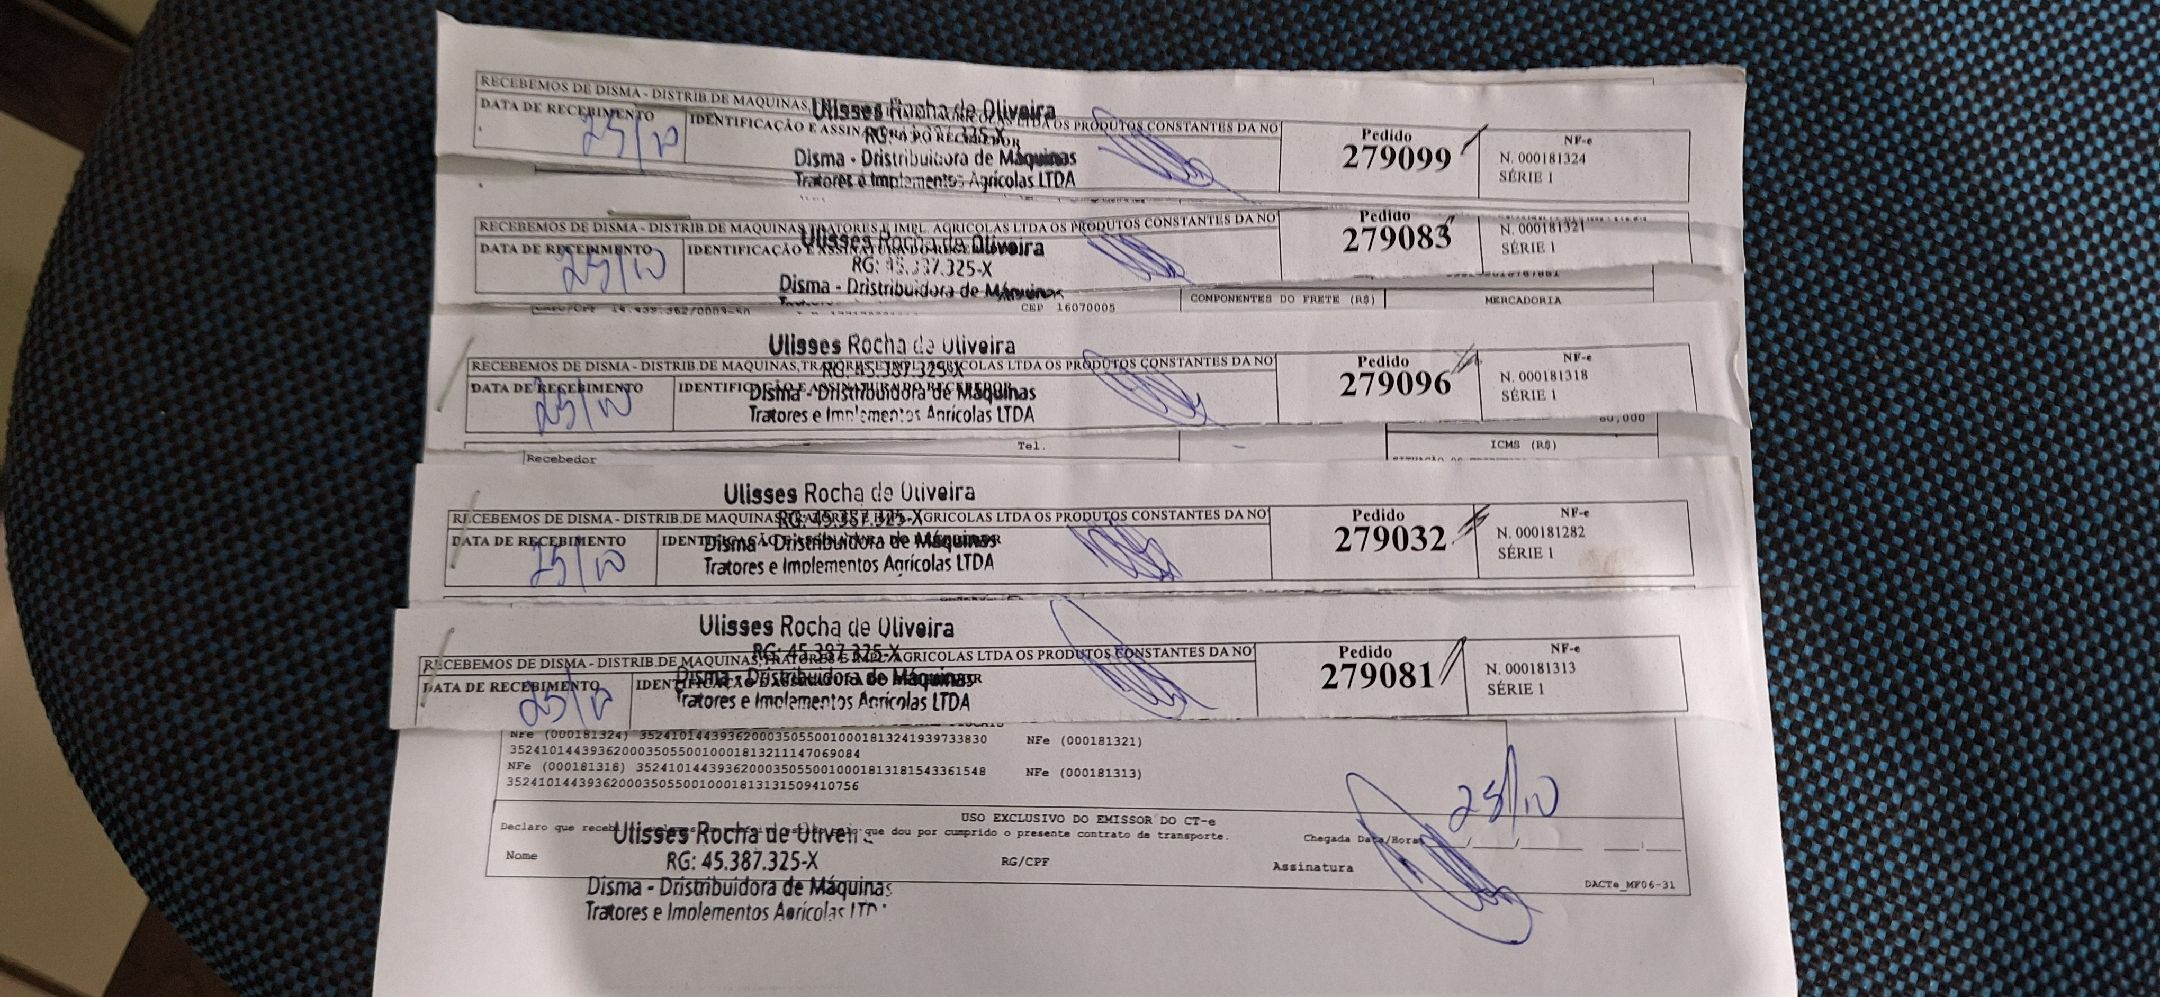 RECEBEMOS DE DISMA - DISTRIB.DE MAQUINAS, LTDA OS PRODUTOS CONSTANTES DA NO
DATA DE RECEBIMENTO IDENTIFICAÇÃO E ASSIN
25/10
Ulisses Rocha de Oliveira
Disma - Dristribuidora de Máquinas
Tratores e Implementos Agrícolas LTDA
Pedido
279099
NF-e
N. 000181324
SÉRIE 1
RECEBEMOS DE DISMA - DISTRIB.DE MAQUINAS TRATORES E IMPL. AGRICOLAS LTDA OS PRODUTOS CONSTANTES DA NO
DATA DE RECEBIMENTO IDENTIFICAÇÃO
25/10
Ulisses Rocha de Oliveira
RG: 45.387.325-X
Disma - Dristribuidora de Máquinas
Pedido
279083
N. 000181321
SÉRIE 1
CEP 16070005
COMPONENTES DO FRETE (R$)
MERCADORIA
Ulisses Rocha de Oliveira
RECEBEMOS DE DISMA - DISTRIB.DE MAQUINAS, COLAS LTDA OS PRODUTOS CONSTANTES DA NO
RG: 45.387.325-X
DATA DE RECEBIMENTO
25/10
Disma - Dristribuidora de Máquinas
Tratores e Implementos Agrícolas LTDA
Pedido
279096
NF-e
N. 000181318
SÉRIE 1
Tel.
ICMS (R$)
Recebedor
Ulisses Rocha de Oliveira
RECEBEMOS DE DISMA - DISTRIB.DE MAQUINAS AGRICOLAS LTDA OS PRODUTOS CONSTANTES DA NO
RG: 45.387.325-X
DATA DE RECEBIMENTO
25/10
Disma - Dristribuidora de Máquinas
Tratores e Implementos Agrícolas LTDA
Pedido
279032
NF-e
N. 000181282
SÉRIE 1
Ulisses Rocha de Oliveira
RG: 45.387.325-X
RECEBEMOS DE DISMA - DISTRIB.DE MAQUINAS, TRATORES E IMPL. AGRICOLAS LTDA OS PRODUTOS CONSTANTES DA NO
DATA DE RECEBIMENTO
25/10
Disma - Dristribuidora de Máquinas
Tratores e Implementos Agrícolas LTDA
Pedido
279081
NF-e
N. 000181313
SÉRIE 1
NFe (000181324) 35241014439362000350550010001813241939733830 NFe (000181321)
35241014439362000350550010001813211147069084
NFe (000181318) 35241014439362000350550010001813181543361548 NFe (000181313)
35241014439362000350550010001813131509410756
USO EXCLUSIVO DO EMISSOR DO CT-e
Declaro que que dou por cumprido o presente contrato de transporte.
Chegada Data/Hora
25/10
Nome
RG/CPF
Assinatura
Ulisses Rocha de Oliveira
RG: 45.387.325-X
Disma - Dristribuidora de Máquinas
Tratores e Implementos Agrícolas LTD
DACTe_MF06-31